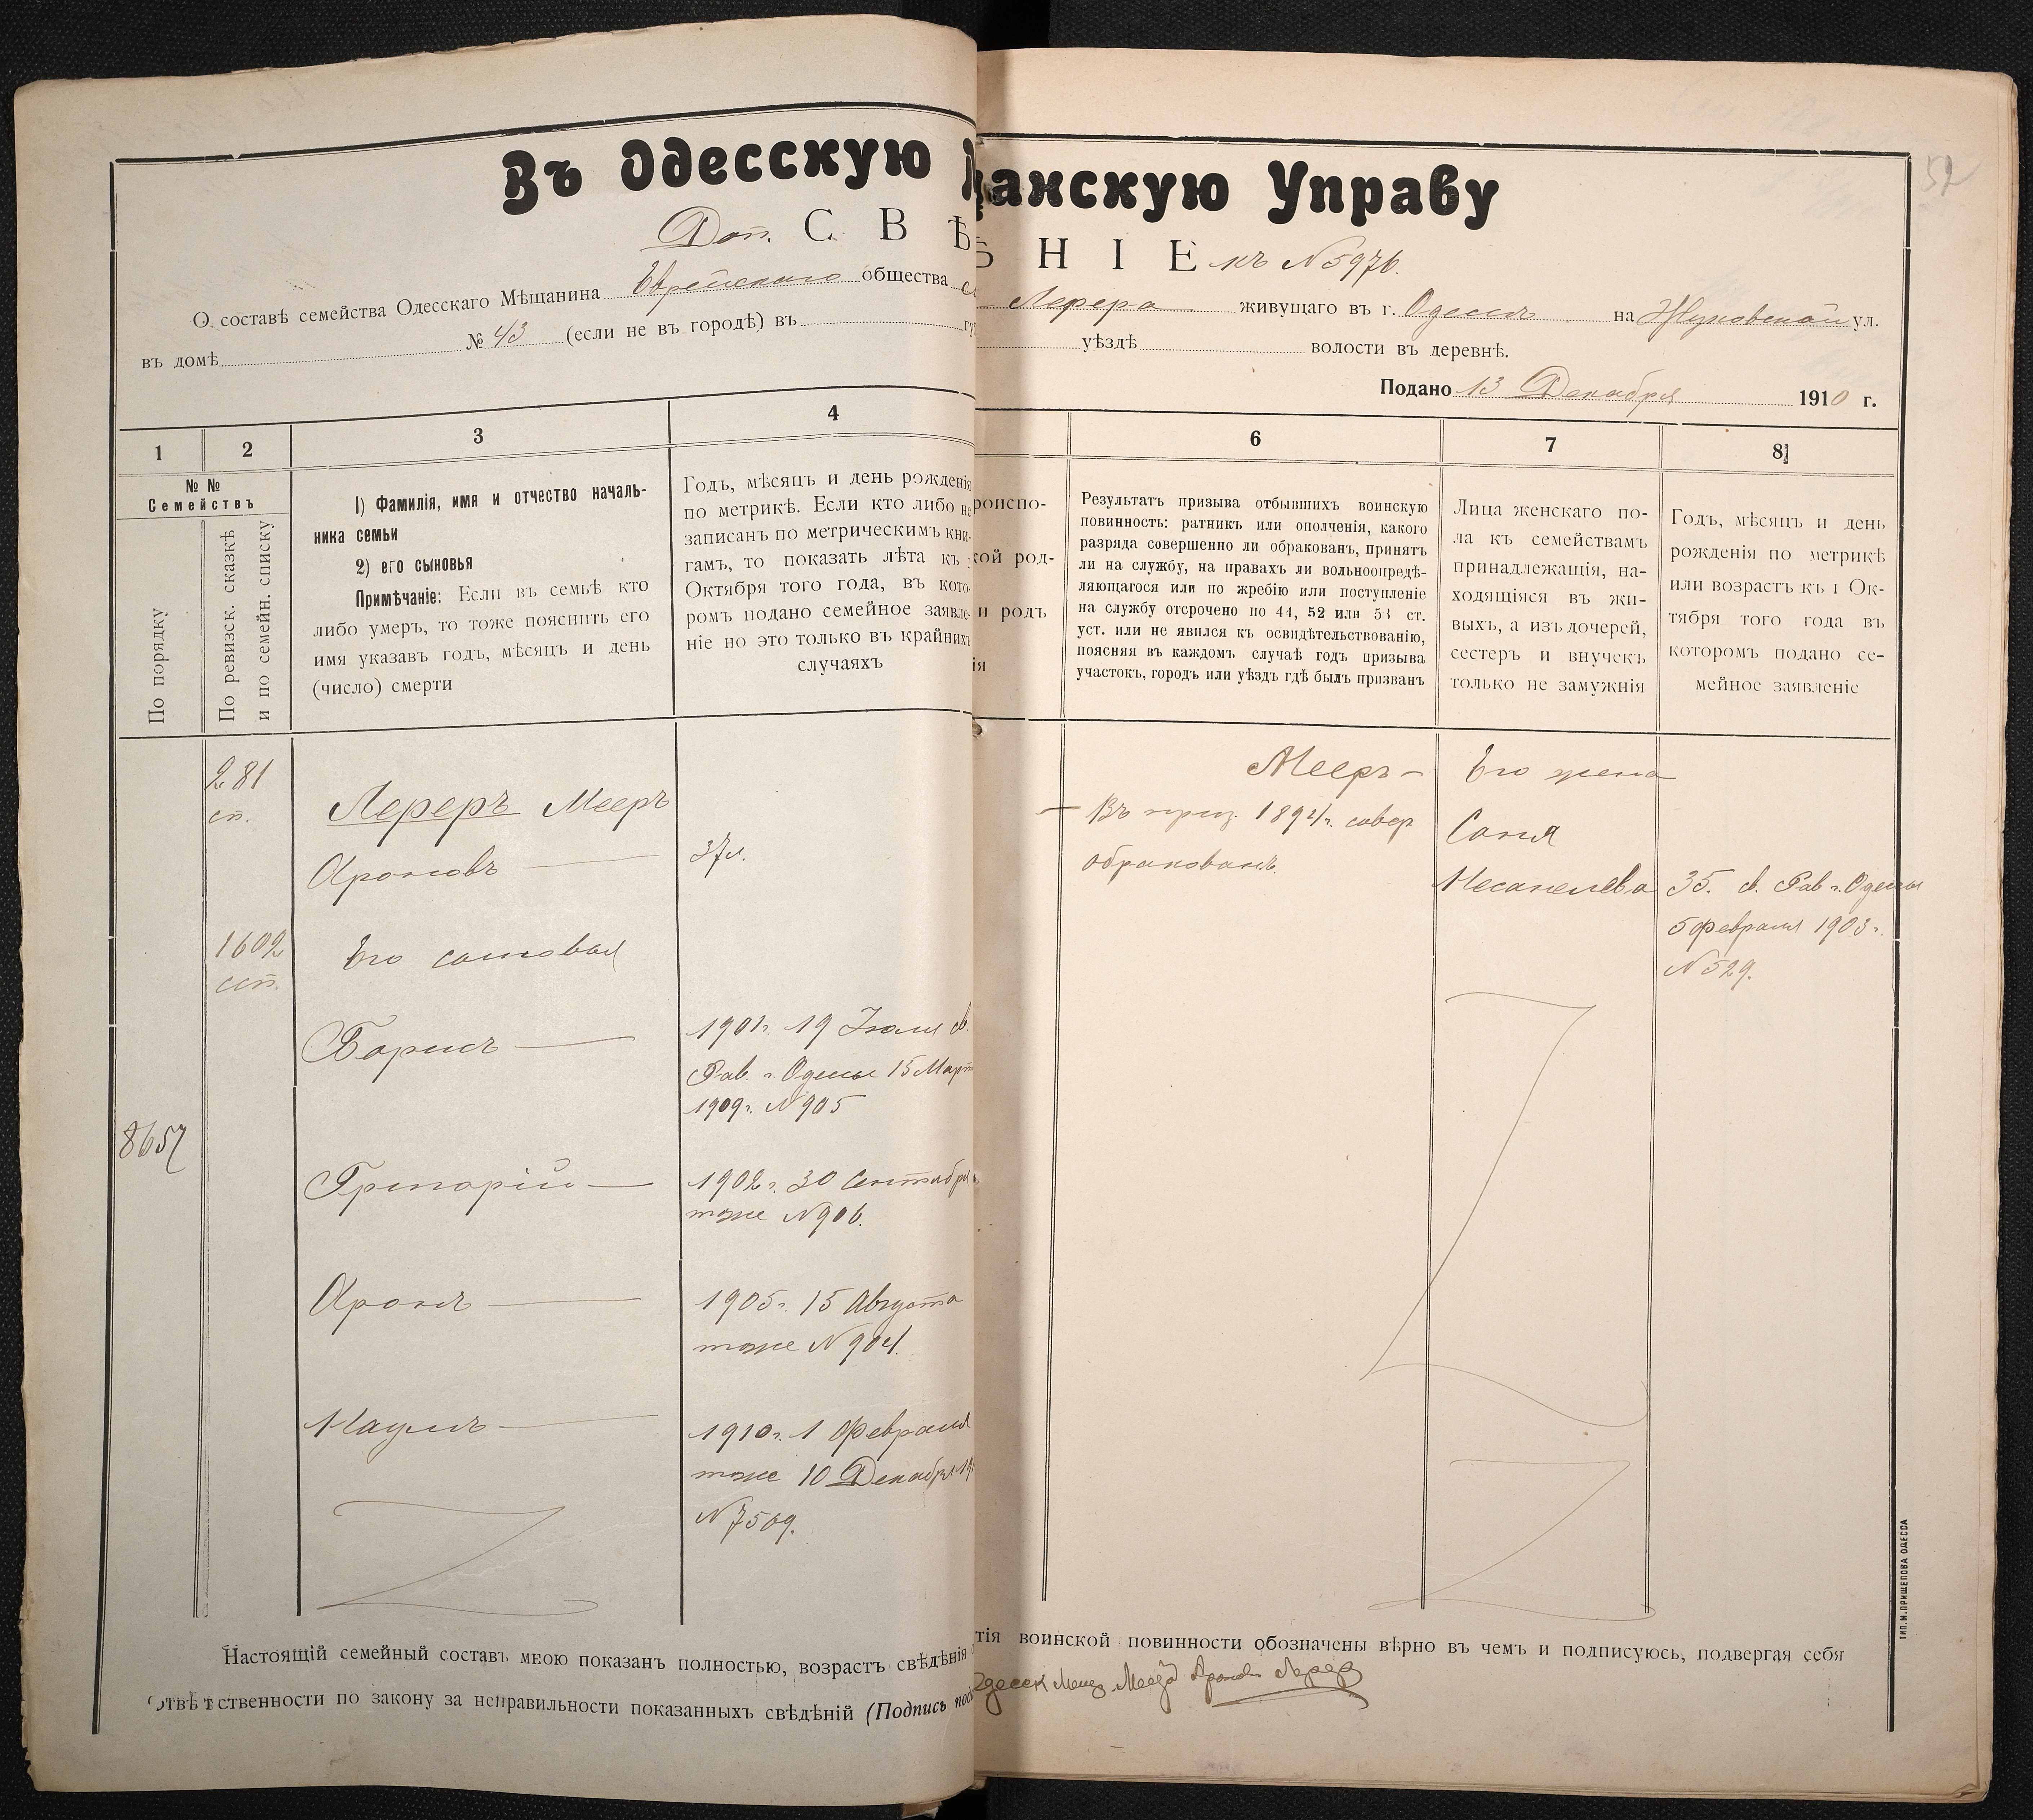 52
Въ Одесскую
щанскую Управу
Доп. С В Ѣ
Н І Е къ N 5976.
О составѣ семейства Одесскаго Мѣщанина Еврейскаго общества
Лерера живущаго въ г. Одессѣ на Жуковской ул.
въ домѣ № 43 (если не въ городѣ) въ
уѣздѣ волости въ деревнѣ.
Подано 13 Декабря 1910 г.
1
2
3
4
6
7
8
№ №
Семействъ
По порядку
По ревизск. сказкѣ
и по семейн. списку
1) Фамилія, имя и отчество началь-
ника семьи
2) его сыновья
Примѣчаніе: Если въ семьѣ кто
либо умеръ, то тоже пояснить его
имя указавъ годъ, мѣсяцъ и день
(число) смерти
Годъ, мѣсяцъ и день рожденія
по метрикѣ. Если кто либо не
записанъ по метрическимъ кни-
гамъ, то показать лѣта къ 1
Октября того года, въ кото-
ромъ подано семейное заявле-
ніе но это только въ крайнихъ
случаяхъ
роиспо-
кой род-
и родъ
ія
Результатъ призыва отбывшихъ воинскую
повинность: ратникъ или ополченія, какого
разряда совершенно ли обракованъ, принятъ
ли на службу, на правахъ ли вольноопредѣ-
ляющагося или по жребію или поступленіе
на службу отсрочено по 44, 52 или 53 ст.
уст. или не явился къ освидѣтельствованію,
поясняя въ каждомъ случаѣ годъ призыва
участокъ, городъ или уѣздъ гдѣ былъ призванъ
Лица женскаго по-
ла къ семействамъ
принадлежащія, на-
ходящіяся въ жи-
выхъ, а изъ дочерей,
сестеръ и внучекъ
только не замужнія
Годъ, мѣсяцъ и день
рожденія по метрикѣ
или возрастъ къ 1 Ок-
тября того года въ
которомъ подано се-
мейное заявленіе
281
сп.
Лереръ Мееръ
Ароновъ
37л.
1602
сп.
Его сыновья
Борисъ
1901г. 19 Іюля св.
Рав. г. Одессы 15 Март
1909г. N 905
8657
Григорій
1902г. 30 Сентября
тоже N 906.
Аронъ
1905г. 15 Августа
тоже N 904.
Наумъ
1910г. 1 Февраля
тоже 10 Декабря 19
N 7569.
Мееръ -
Въ приз. 1894г. совер
обракованъ.
Его жена
Соня
Несанелева
35. св. Рав г. Одессы
5 Февраля 1903 г.
N 529.
Настоящій семейный составъ мною показанъ полностью, возрастъ свѣдѣнія
тія воинской повинности обозначены вѣрно въ чемъ и подписуюсь, подвергая себя
отвѣтственности по закону за неправильности показанныхъ свѣдѣній (Подпись
Одесск Мещ. Мееръ Аронов Лерер
ТИП. М. ПРИЩЕПОВА ОДЕССА